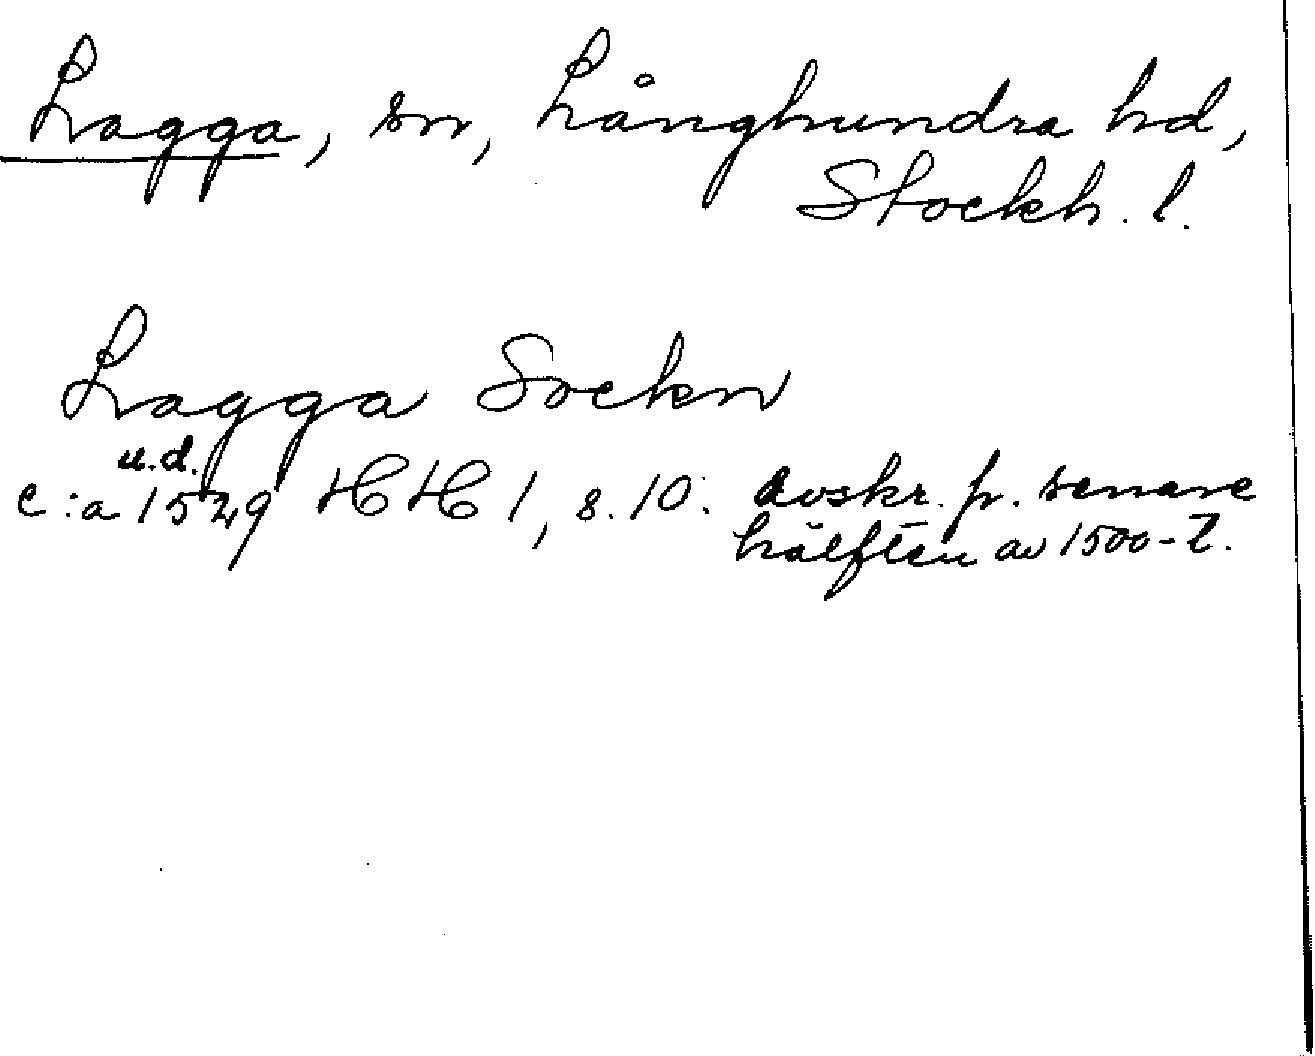 Lagga, sn, Långhundra hd,
Stockh. l.
Lagga Sockn
u.d.
c:a 1529 HH 1, s. 10: avskr. fr. senare
hälften av 1500-t.